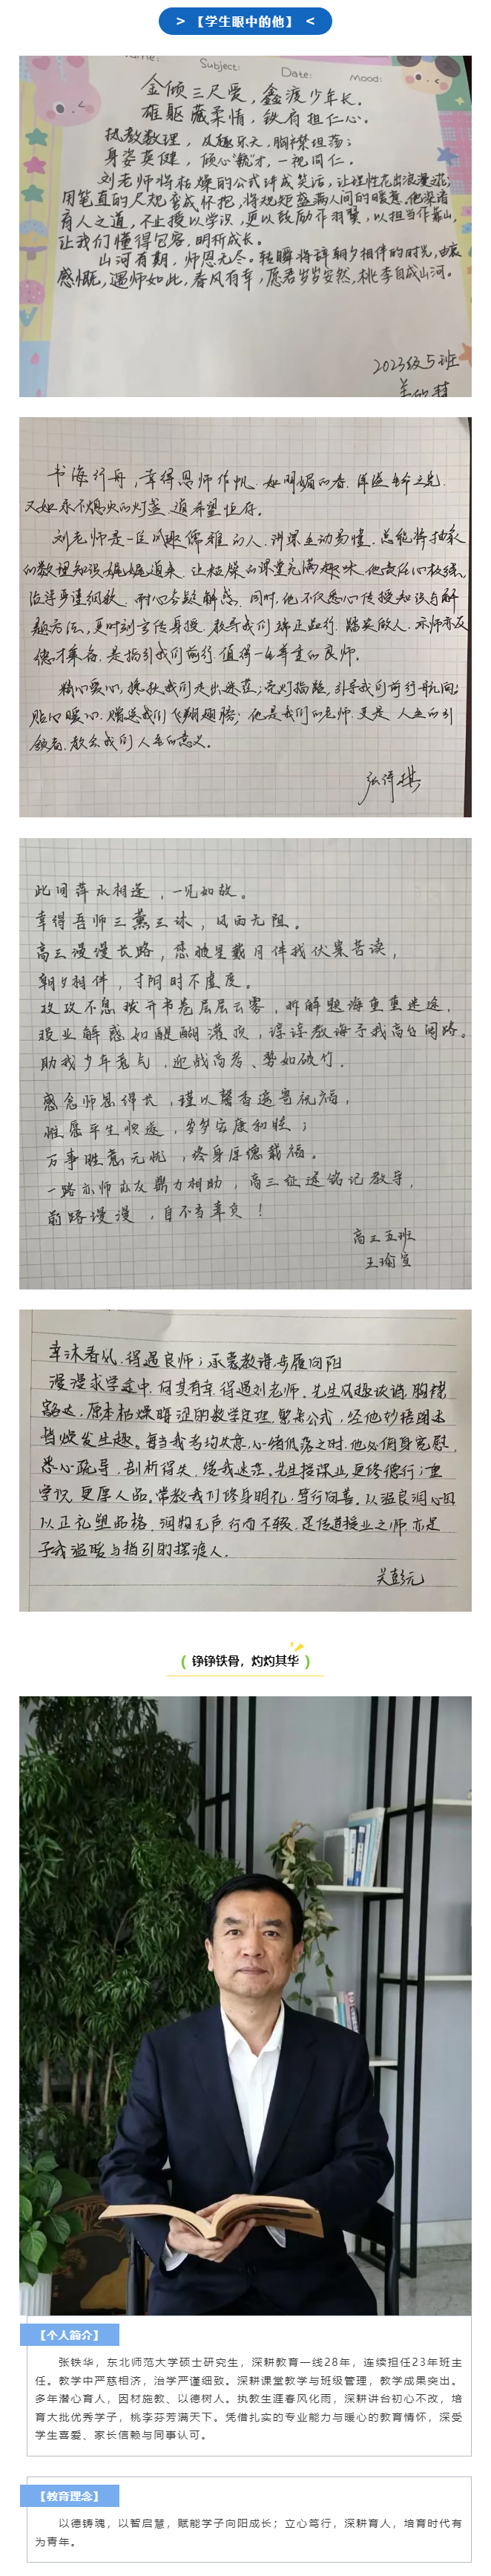 > 【学生眼中的他】 <
Name:
Subject:
Date:
Mood:
金倾三尺爱，鑫渡少年长。
雄躯藏柔情，铁肩担仁心。
执教数理，风趣乐天，胸襟坦荡；
身姿英健，倾心毓才，一视同仁。
刘老师将枯燥的公式讲成笑话，让理性花出浪漫之花；
用笔直的尺规弯成怀抱，将规矩盛满人间的暖意。他深谙
育人之道，不止授以学识，更以鼓励作羽翼，以担当作靠山，
让我们懂得包容，明析成长。
山河有期，师恩无尽。转瞬将辞朝夕相伴的时光，由衷
感慨，遇师如此，春风有幸，愿君岁岁安然，桃李自成山河。
2023级5班
书海行舟，幸得恩师作帆。如明媚的春，洋溢生命之光，
又如永不熄灭的灯盏，道希望恒存。
刘老师是一位风趣儒雅的人，讲课生动易懂，总能将抽象
的数理知识娓娓道来，让枯燥的课堂充满趣味。他责任心极强，
治学严谨细致，耐心答疑解惑。同时，他不仅悉心传授知识与解
题方法，更时刻言传身授，教导我们端正品行，踏实做人，亦师亦友
德才兼备，是指引我们前行，值得一生尊重的良师。
精心暖心，搀扶我们走出迷茫；亮灯指路，引导我们前行航向；
贴心暖心，赠送我们飞翔翅膀；他是我们的老师，更是人生的引
领者，教会我们人生的意义。
此间萍水相逢，一见如故。
幸得吾师三薰三沐，风雨无阻。
高三漫漫长路，您披星戴月伴我伏案苦读，
朝夕相伴，寸阴时不虚度。
孜孜不息拨开书卷层层云雾，拆解题海重重迷途，
授业解惑如醍醐灌顶，谆谆教诲予我高位阔路。
助我少年意气，迎战高考、势如破竹。
感念师恩绵长，谨以馨香遥寄祝福，
惟愿平生顺遂，岁岁安康和睦；
万事胜意无忧，终身厚德载福。
一路亦师亦友鼎力相助，高三征途铭记教导，
前路漫漫，自不当辜负！
高三五班
王瑜萱
幸沐春风，得遇良师；承蒙教诲，步履向阳
漫漫求学途中，何其有幸，得遇刘老师。先生风趣诙谐，胸襟
豁达，原本枯燥晦涩的数学定理，繁杂公式，经他妙语团述
皆焕发生趣。每当我考约失意，心绪低落之时，他必俯身宽慰，
悉心疏导，剖析得失，缓我迷茫。先生授课业，更修德行；重
学识，更厚人品。常教我们修身明礼，笃行向善。以温良润心田
以正礼塑品格，润物无声，行而不辍，是传道授业之师，亦是
予我温暖与指引的摆渡人。
关彭元
( 铮铮铁骨，灼灼其华 )
【个人简介】
张铁华，东北师范大学硕士研究生，深耕教育一线28年，连续担任23年班主
任。教学中严慈相济，治学严谨细致。深耕课堂教学与班级管理，教学成果突出。
多年潜心育人，因材施教、以德树人。执教生涯春风化雨，深耕讲台初心不改，培
育大批优秀学子，桃李芬芳满天下。凭借扎实的专业能力与暖心的教育情怀，深受
学生喜爱、家长信赖与同事认可。
【教育理念】
以德铸魂，以智启慧，赋能学子向阳成长；立心笃行，深耕育人，培育时代有
为青年。